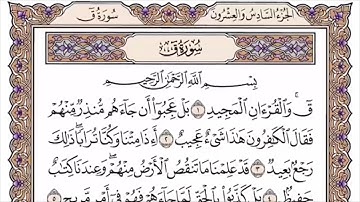 الجزء السادس والعشرون سورة ق
سورة ق
بسم الله الرحمن الرحيم
ق ۚ وَالْقُرْءَانِ الْمَجِيدِ ١ بَلْ عَجِبُوا أَن جَاءَهُم مُّنذِرٌ مِّنْهُمْ
فَقَالَ الْكَٰفِرُونَ هَٰذَا شَىْءٌ عَجِيبٌ ٢ أَءِذَا مِتْنَا وَكُنَّا تُرَابًا ۖ ذَٰلِكَ
رَجْعٌ بَعِيدٌ ٣ قَدْ عَلِمْنَا مَا تَنقُصُ الْأَرْضُ مِنْهُمْ ۖ وَعِندَنَا كِتَٰبٌ
حَفِيظٌ ٤ بَلْ كَذَّبُوا بِالْحَقِّ لَمَّا جَاءَهُمْ فَهُمْ فِى أَمْرٍ مَّرِيجٍ ٥